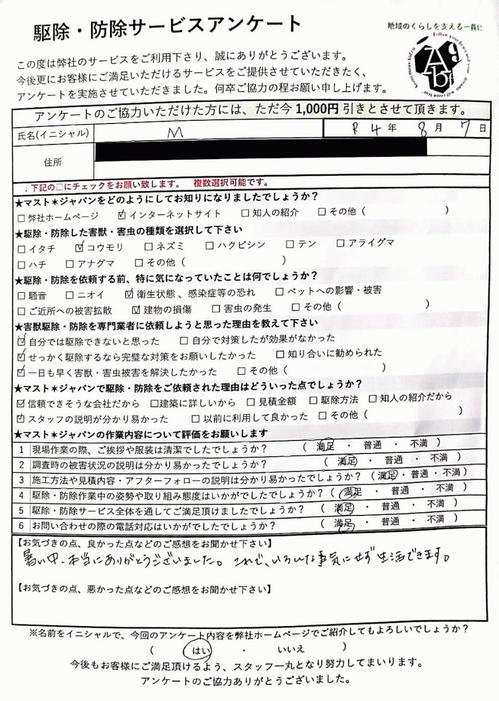 駆除・防除サービスアンケート
地域のくらしを支える一員に
この度は弊社のサービスをご利用下さり、誠にありがとうございます。
今後更にお客様にご満足いただけるサービスをご提供させていただきたく、
アンケートを実施させていただきました。何卒ご協力の程お願い申し上げます。
アンケートのご協力いただけた方には、ただ今 1,000円 引きとさせて頂きます。
氏名(イニシャル) M R4年 8月 7日
住所
．下記の□にチェックをお願い致します。 複数選択可能です。
★マスト＊ジャパンをどのようにしてお知りになりましたでしょうか？
□弊社ホームページ ☑インターネットサイト □知人の紹介 □その他（ ）
★駆除・防除した害獣・害虫の種類を選択して下さい
□イタチ ☑コウモリ □ネズミ □ハクビシン □テン □アライグマ
□ハチ □アナグマ □その他（ ）
★駆除・防除を依頼する前、特に気になっていたことは何でしょうか？
□騒音 □ニオイ ☑衛生状態、感染症等の恐れ □ペットへの影響・被害
□ご近所への被害拡散 ☑建物の損傷 □害虫の発生 □その他（ ）
★害獣駆除・防除を専門業者に依頼しようと思った理由を教えて下さい
☑自分では駆除できないと思った □自分で対策したが効果がなかった
☑せっかく駆除するなら完璧な対策をお願いしたかった □知り合いに勧められた
☑一日も早く害獣・害虫被害を解決したかった □その他（ ）
★マスト＊ジャパンで駆除・防除をご依頼された理由はどういった点でしょうか？
☑信頼できそうな会社だから □建築に詳しいから □見積金額 □駆除方法 □知人の紹介だから
☑スタッフの説明が分かり易かった □以前に利用して良かった □その他（ ）
★マスト＊ジャパンの作業内容について評価をお願いします
1 現場作業の際、ご挨拶や服装は清潔でしたでしょうか？ （ 満足 ・ 普通 ・ 不満 ）
2 調査時の被害状況の説明は分かり易かったでしょうか？ （ 満足 ・ 普通 ・ 不満 ）
3 施工方法や見積内容・アフターフォローの説明は分かり易かったでしょうか？（ 満足 ・ 普通 ・ 不満 ）
4 駆除・防除作業中の姿勢や取り組み態度はいかがでしたでしょうか？（ 満足 ・ 普通 ・ 不満 ）
5 駆除・防除サービス全体を通してご満足頂けましたでしょうか？（ 満足 ・ 普通 ・ 不満 ）
6 お問い合わせの際の電話対応はいかがでしたでしょうか？（ 満足 ・ 普通 ・ 不満 ）
【お気づきの点、良かった点などのご感想をお聞かせ下さい】
暑い中、本当にありがとうございました。これで、いろんな事気にせず生活できます。
【お気づきの点、悪かった点などのご感想をお聞かせ下さい】
※名前をイニシャルで、今回のアンケート内容を弊社ホームページでご紹介してもよろしいでしょうか？
（ はい ・ いいえ ）
今後もお客様にご満足頂けるよう、スタッフ一丸となり努力してまいります。
アンケートのご協力ありがとうございました。